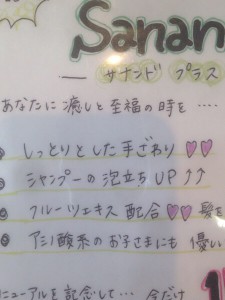 Sanan
サナンド プラス
あなたに 癒しと 至福の 時を ‥‥
しっとりとした手ざわり♡♡
シャンプーの 泡立ち UP ↑↑
フルーツエキス 配合♡♡ 髪を
アミノ酸系の お子さまにも 優しい
ニューアルを 記念して… 今だけ